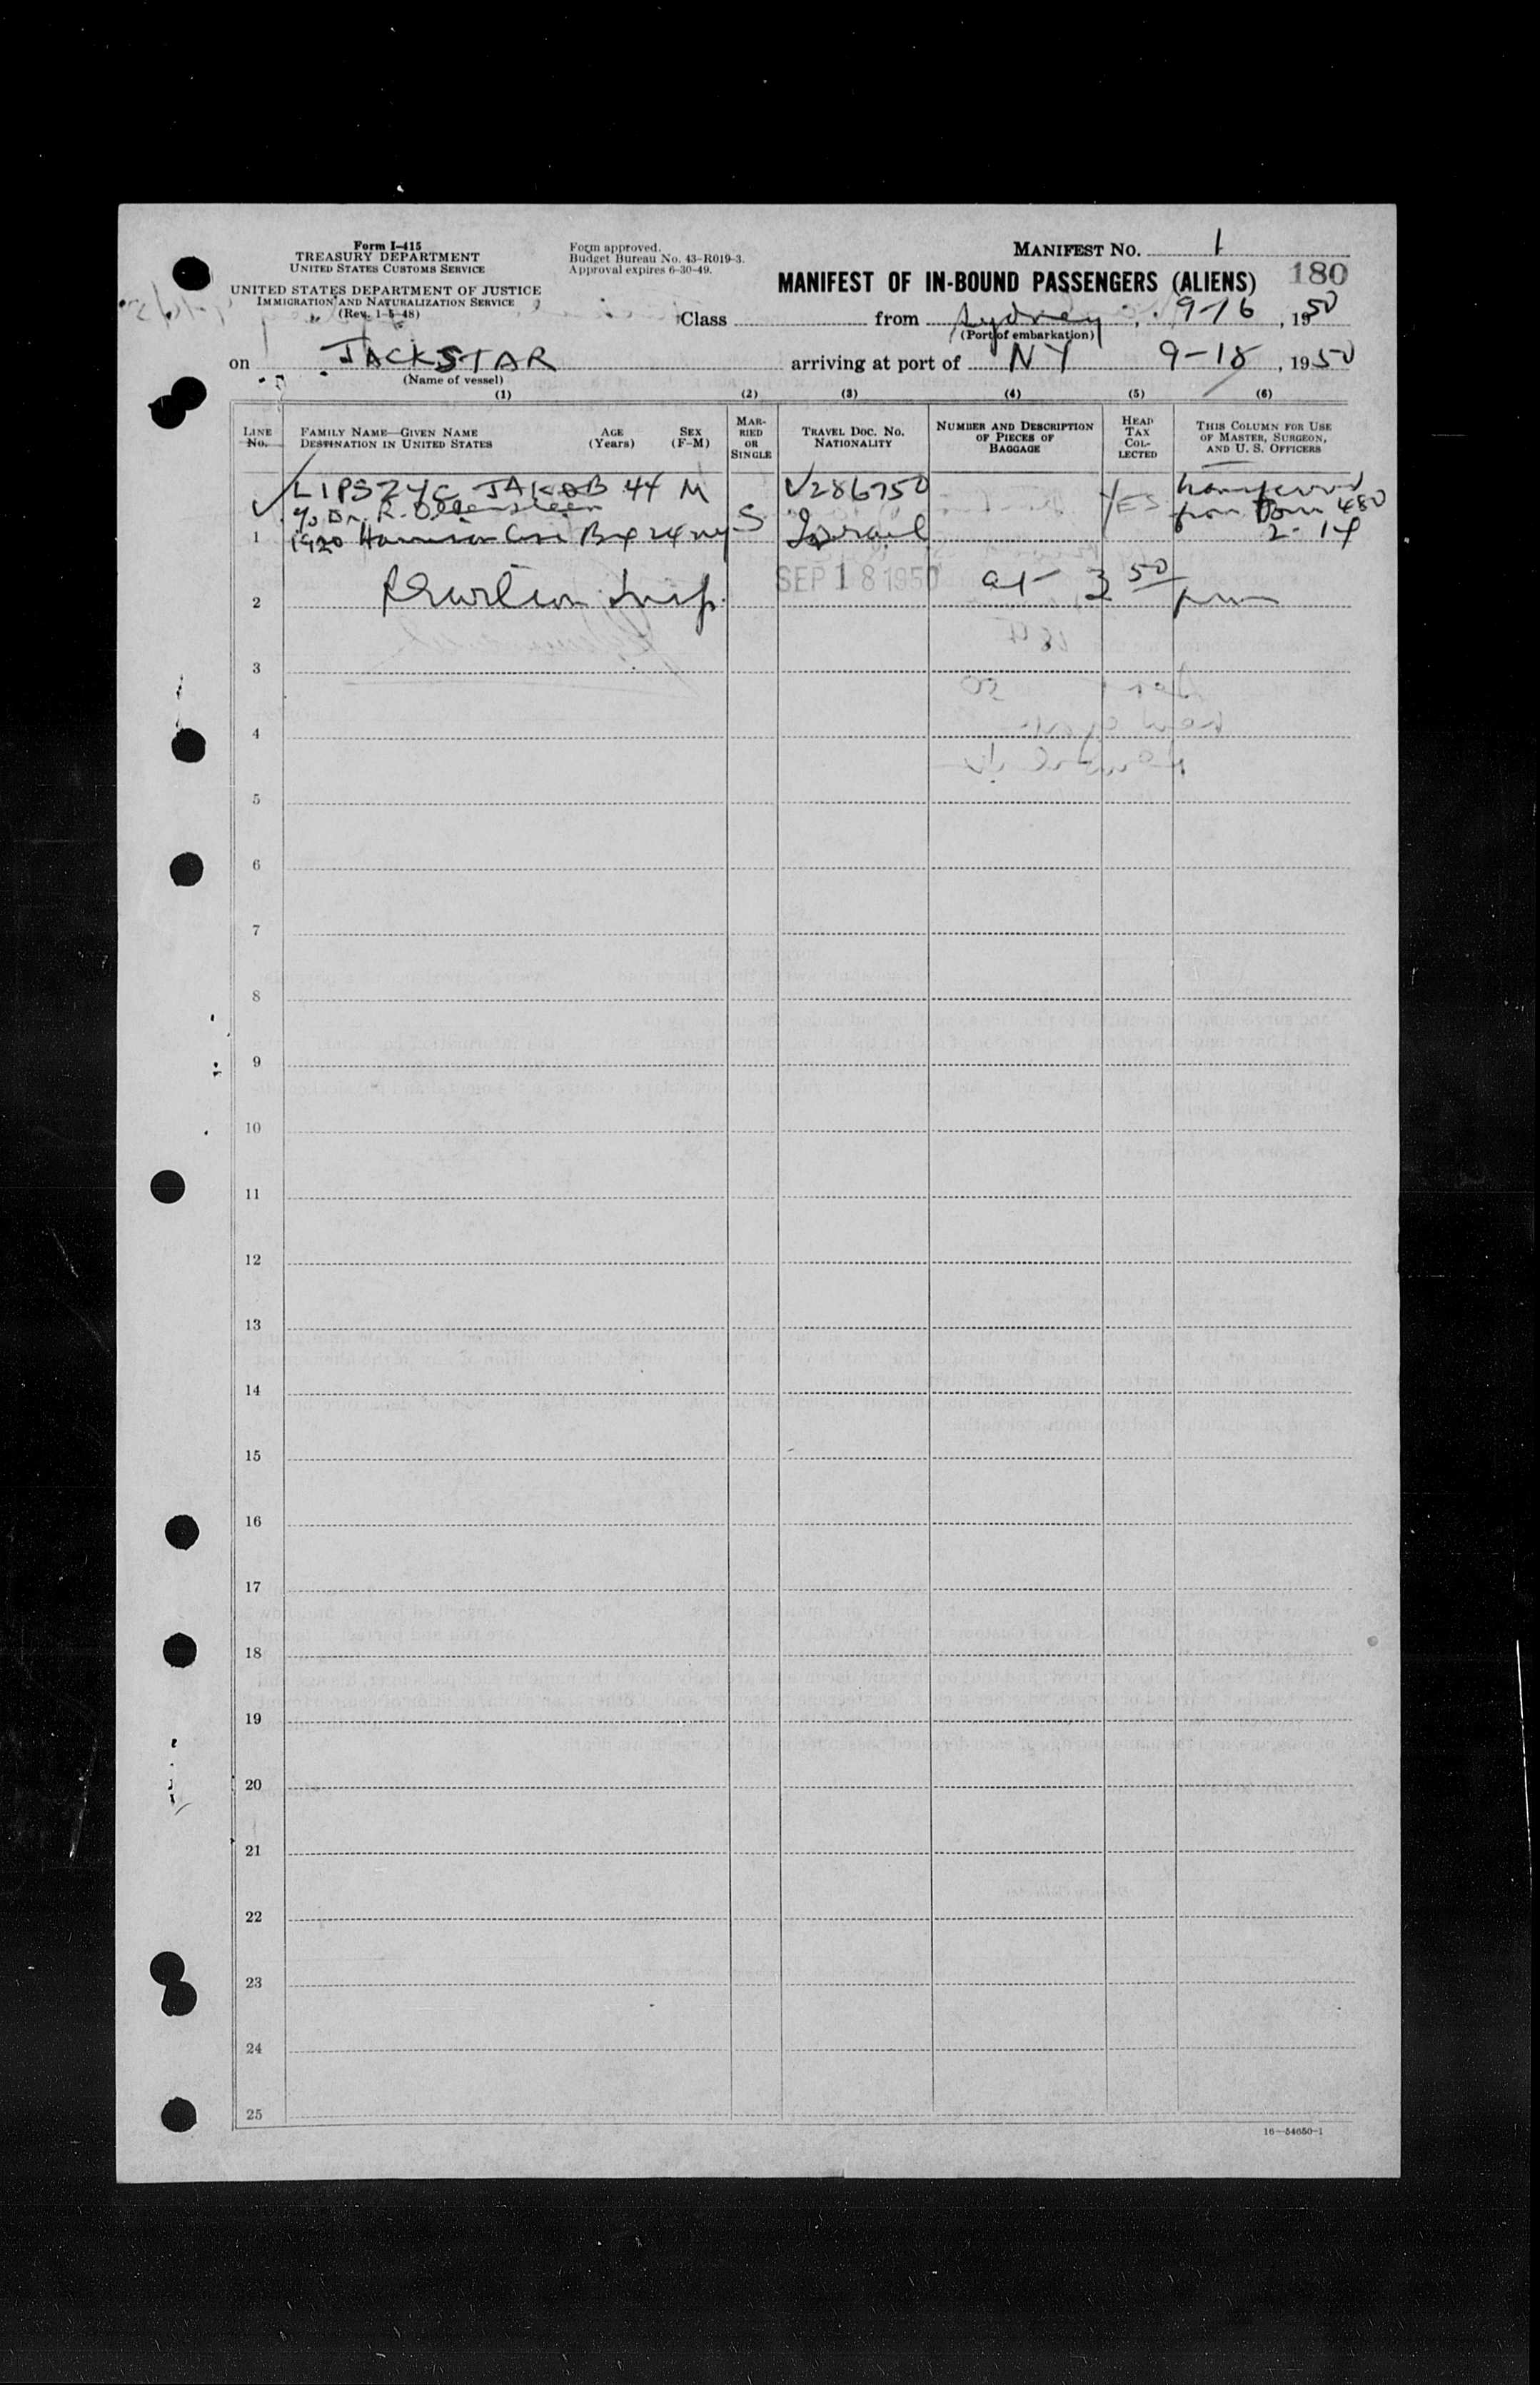 Form I-415
TREASURY DEPARTMENT
UNITED STATES CUSTOMS SERVICE
UNITED STATES DEPARTMENT OF JUSTICE
IMMIGRATION AND NATURALIZATION SERVICE
(Rev. 1-5-48)
Form approved.
Budget Bureau No. 43-R019-3.
Approval expires 6-30-49.
MANIFEST NO. 1
MANIFEST OF IN-BOUND PASSENGERS (ALIENS) 180
Class from Sydney, 9-16, 1950
(Port of embarkation)
on JACKSTAR arriving at port of NY 9-18, 1950
(Name of vessel)
(1) (2) (3) (4) (5) (6)
LINE No.
FAMILY NAME—GIVEN NAME
DESTINATION IN UNITED STATES
AGE (Years)
SEX (F-M)
MARRIED OR SINGLE
TRAVEL DOC. NO.
NATIONALITY
NUMBER AND DESCRIPTION OF PIECES OF BAGGAGE
HEAD TAX COLLECTED
THIS COLUMN FOR USE OF MASTER, SURGEON, AND U. S. OFFICERS
LIPSZYC JAKOB 44 M V286750 YES transferred
c/o Dr. R. S from 480
1 1920 Harrison Ave Bx 24 NY Israel 2-14
2 Insp. SEP 18 1950 at 3 50 pm
3
4
5
6
7
8
9
10
11
12
13
14
15
16
17
18
19
20
21
22
23
24
25
16—54650-1